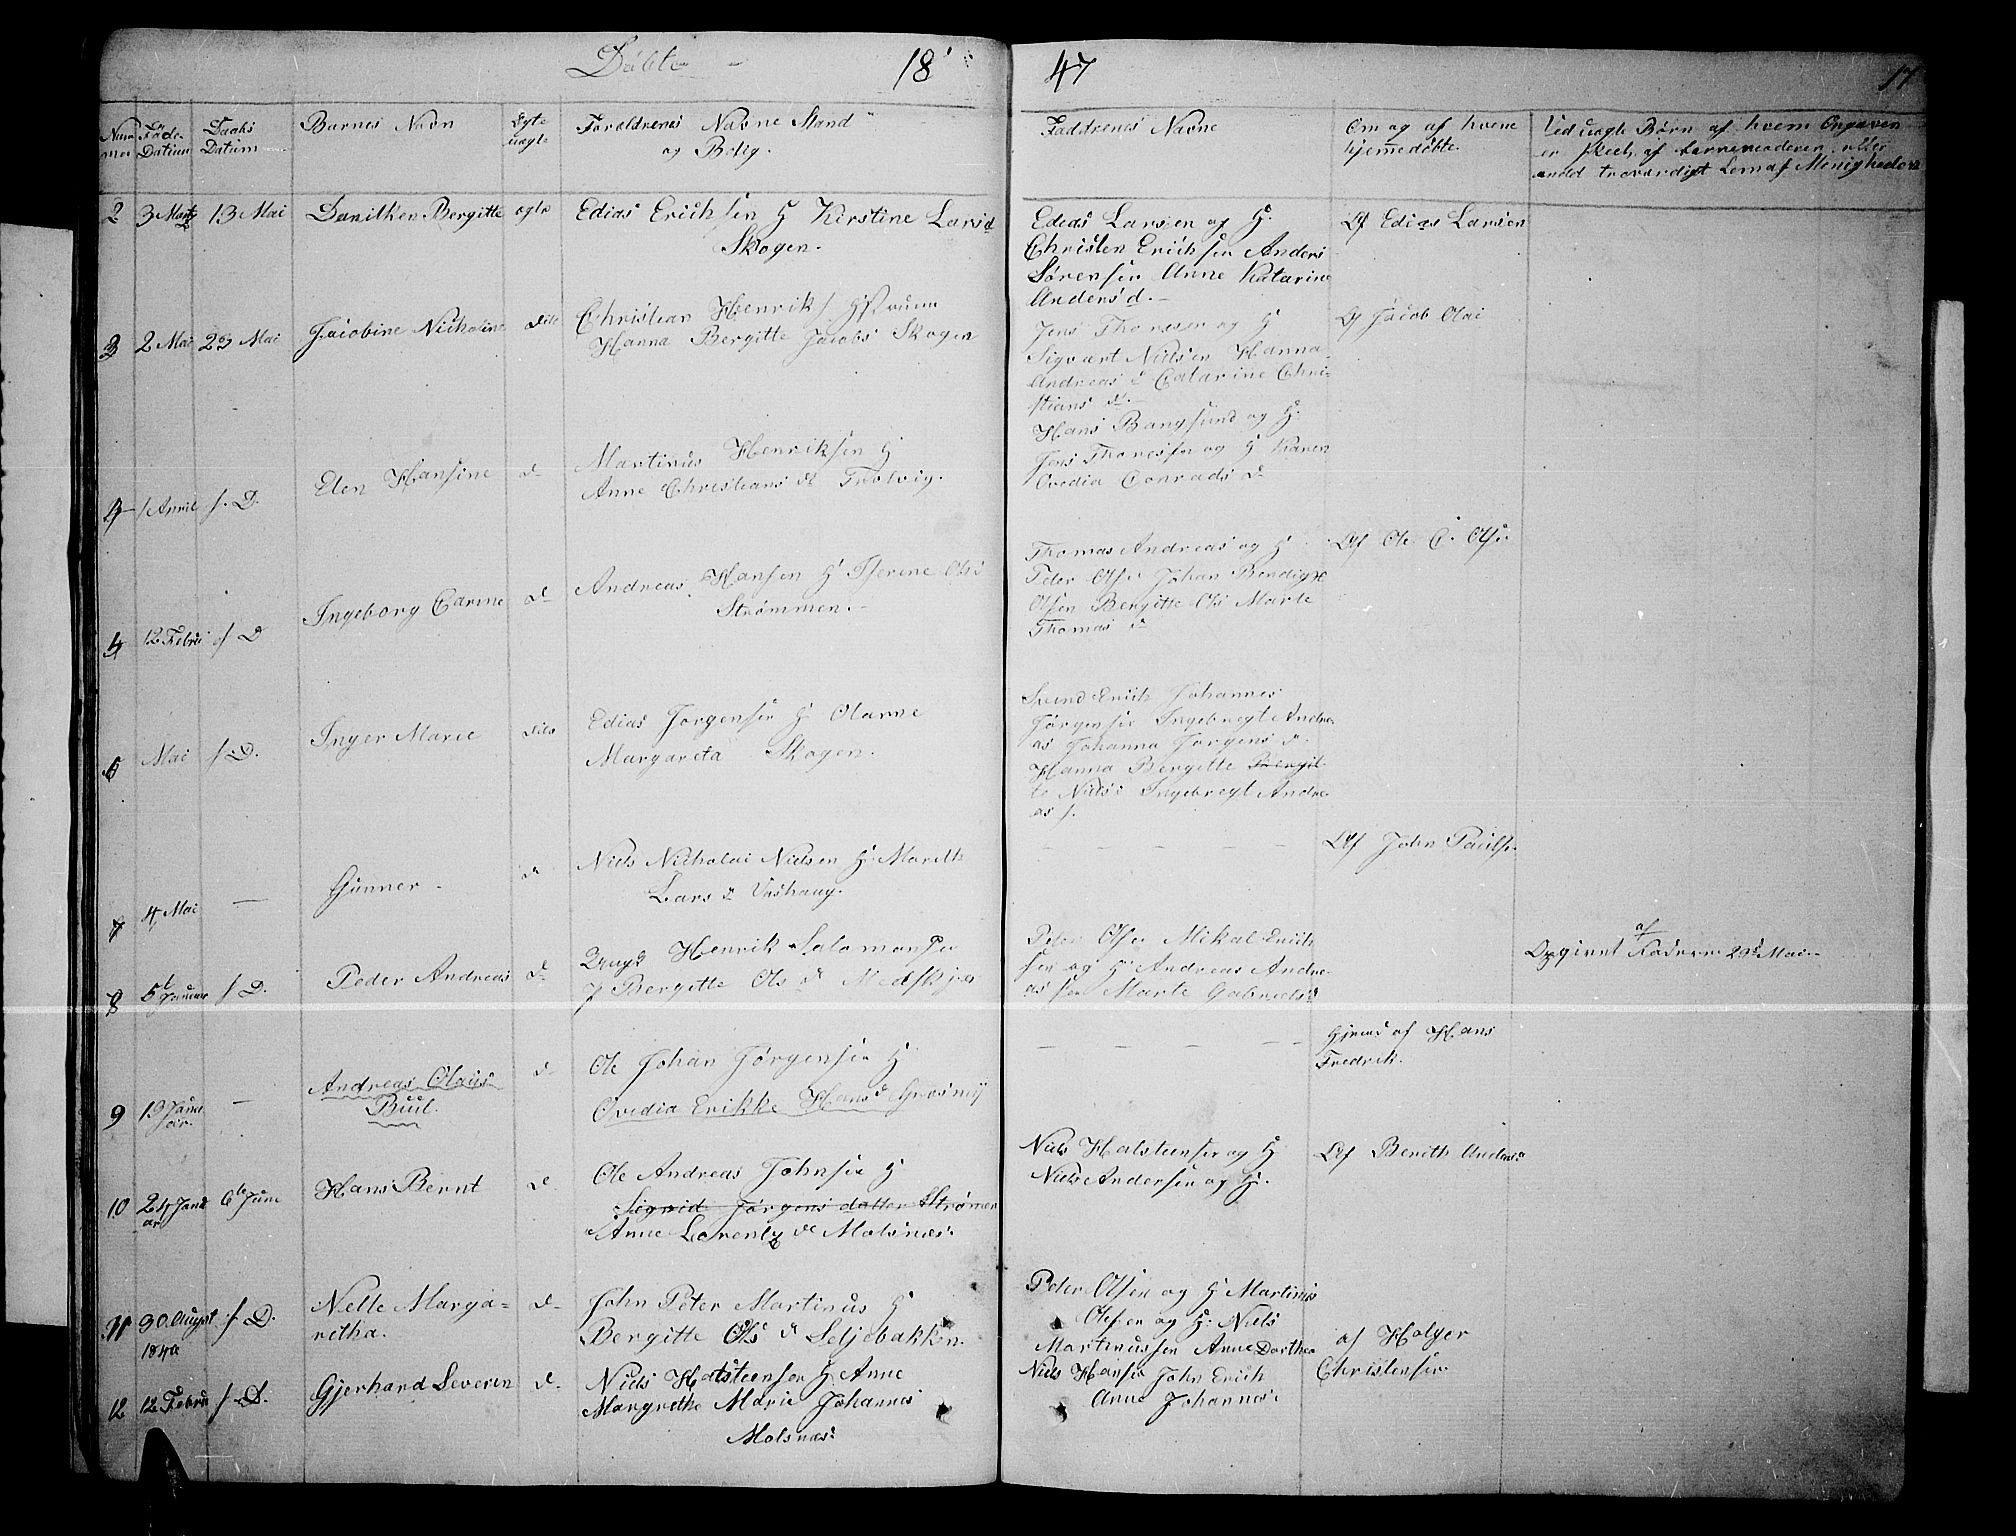 Døbte 18 47 17
Num mer Føde Datum Daabs Datum Barnes Navn Egte uegte Forældrenes Navne Stand og Bolig. Faddrenes Navne Om og af hvem hjemmedøbte. Ved uegte Børn af hvem Opgaven er skeet, af barnemoderen eller andet troværdigt Lem af Menigheden
2 3 Marts 13 Mai Danilken Bergitte egte Edias Erichsen H Kirstine Larsd
Skogen.
Edias Larsen og H.
Christen Erichsen Anders
Sørensen Anne Katarine
Andersd.
Af Edias Larsen
3 2 Mai 23 Mai Jacobine Nicholine dito Christian Henriks.
Hanna Bergitte Jacobs Skogen
Jens Thoresen og H
Sigvart Nielsen Hanna
Andreas d Catarine Chri-
stians d.
Af Jacob Olai
4 1 April s. D. Elen Hansine d- Martinus Henriksen H
Anne Christians d Trolvig.
Hans Bangsund og H.
Jens Thoresen og H Karen
Ovedia Conrads d
4 12 Febru s. D Ingeborg Carine d- Andreas Hansen H Iserine Ols
Strømmen.
Thomas Andreas og H
Peder Olsen Johan Bendigt
Olsen Bergitte Ols Marte
Thomas d
Af Ole C. Ols
Mai s. D. Inger Marie dito Edias Jørgensen H Olarne
Margareta Skogen.
Svend Erich Johannes
Jørgensen Ingebregt Andre
as Johanna Jørgens d.
Hanna Bergitte
Niels Ingebregt Andre
as s.
7 4 Mai — Gunner. d Niels Nicholai Nielsen H. Marith
Lars d Vashaug.
Af John Paulsen
8 5 Januar s. D. Peder Andreas d- Henrik Salomonsen
Bergitte Ols d Medskjer
Peder Olsen Mikal Erich
sen og H Andreas Andre
as sen Marte Gabriels d
Opgivet af Faderen 29d Mai.
9 19 Janu ar. — Andreas Olaus
Buul.
d- Ole Johan Jørgensen H
Ovedia Erikke Hans d Græsmÿ
Hjemd af Hans
Fredrik.
10 24 Janu ar 6te June Hans Bernt d Ole Andreas Johnsen H
Sigrid Jørgens datter Strømen
Anne Lorentz d Molsnæs.
Niels Halsteensen og H
Niels Andersen og H.
Af Berith Anders
11 30 August 1846 s. D. Nelle Marga=
retha.
d- John Peter Martinus H
Bergitte Ols d Seljebakken.
Peder Olsen og H Martinus
Olesen og H. Niels
Martinussen Anne Dorthea
12 12 Febru s. D. Gjerhard Severin d- Niels Halsteensen H. Anne
Margrethe Marie Johannes
Molsnæs.
Niels Hansen John Erich
Anne Johannes
af Holger
Christensen